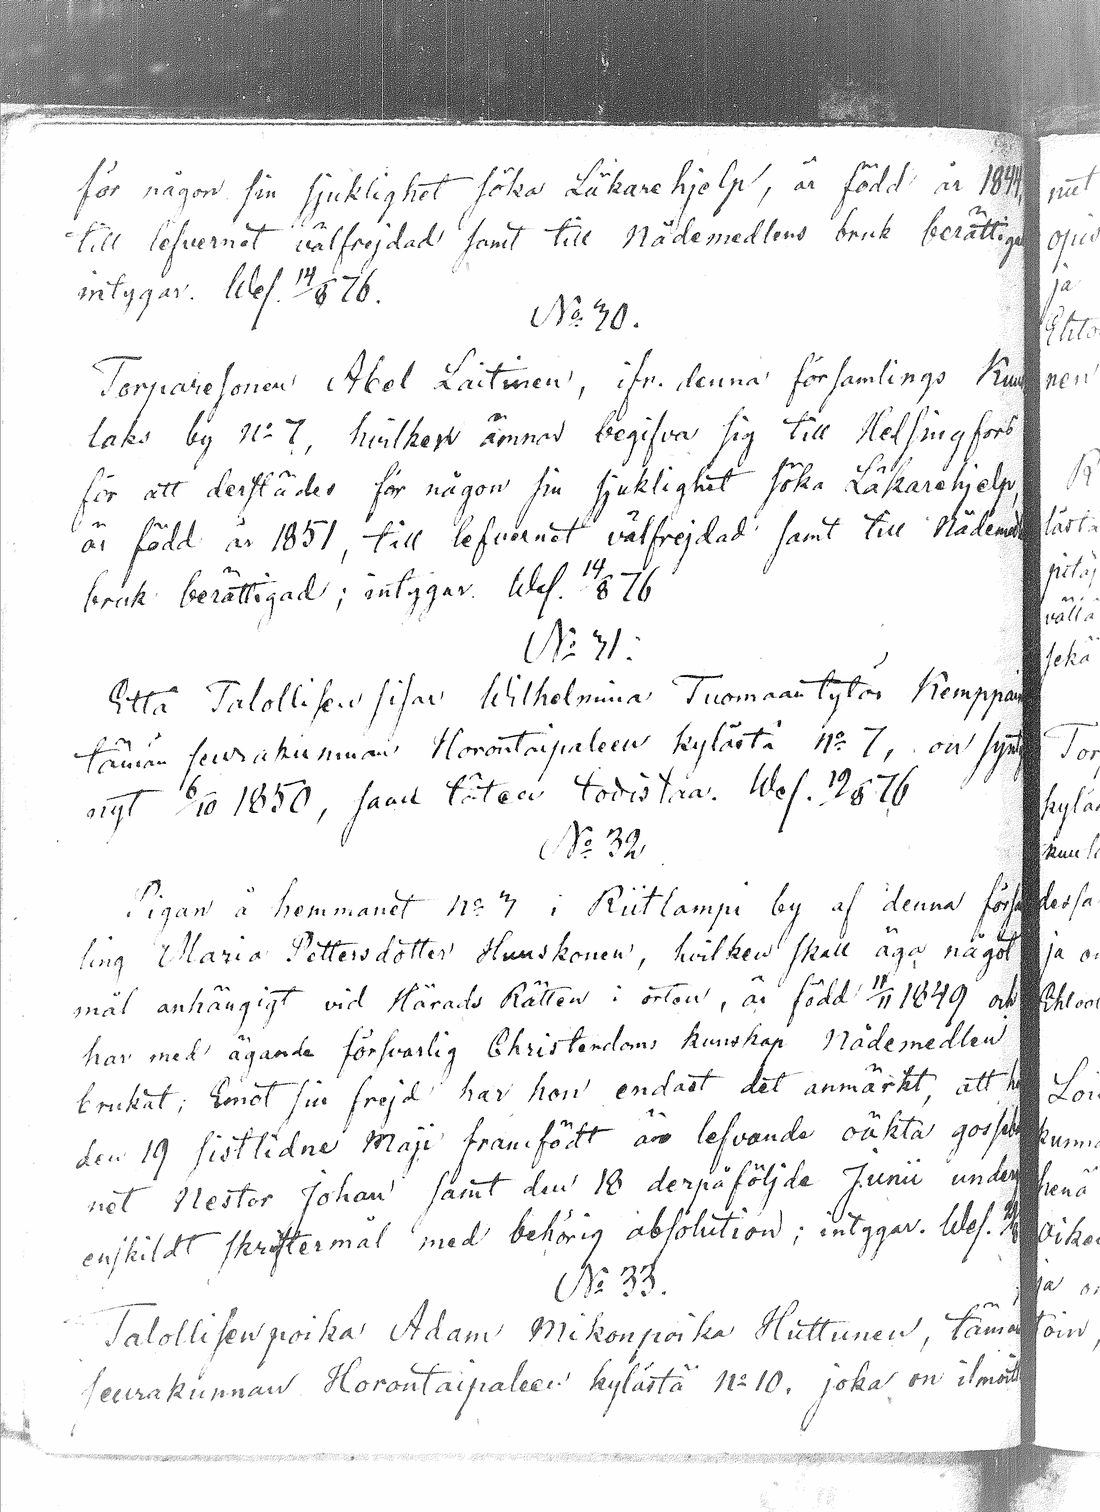 för någon sin sjuklighet söka Läkarehjelp, är född år 1844,
till lefvernet välfrejdad samt till Nådemedlens bruk berättiga
intygar. Wes. 14/8 76.
No 30.
Torparesonen Abel Laitinen, ifr. denna församlings Kuus
laks by No 7, hvilken ämnar begifva sig till Helsingfors
för att derstädes för någon sin sjuklighet söka Läkarehjelp,
är född år 1851, till lefvernet välfrejdad samt till Nådemed
bruk berättigad; intygar. Wes. 14/8 76
No 31.
Että Talollisen sisar Wilhelmina Tuomaantytär Kemppai
tämän seurakunnan Horontaipaleen kylästä No 7, on synty
nyt 6/10 1850, saan täten todistaa. Wes. 19/8 76
No 32
Pigan å hemmanet No 3 i Riitlampi by af denna försa
ling Maria Pettersdotter Huuskonen, hvilken skall äga något
mål anhängigt vid Härads Rätten i orten, är född 18/11 1849 och
har med ägande försvarlig Christendoms kunskap Nådemedlen
brukat; Emot sin frejd har hon endast det anmärkt, att h
den 19 sistlidne Maji framfödt än lefvande oäkta gosseba
net Nestor Johan samt den 18 derpåföljde Junii under
enskildt skriftermål med behörig absolution; intygar. Wes.
No 33.
Talollisen poika Adam Mikonpoika Huttunen, tämän
seurakunnan Horontaipaleen kylästä No 10. joka on ilmoit